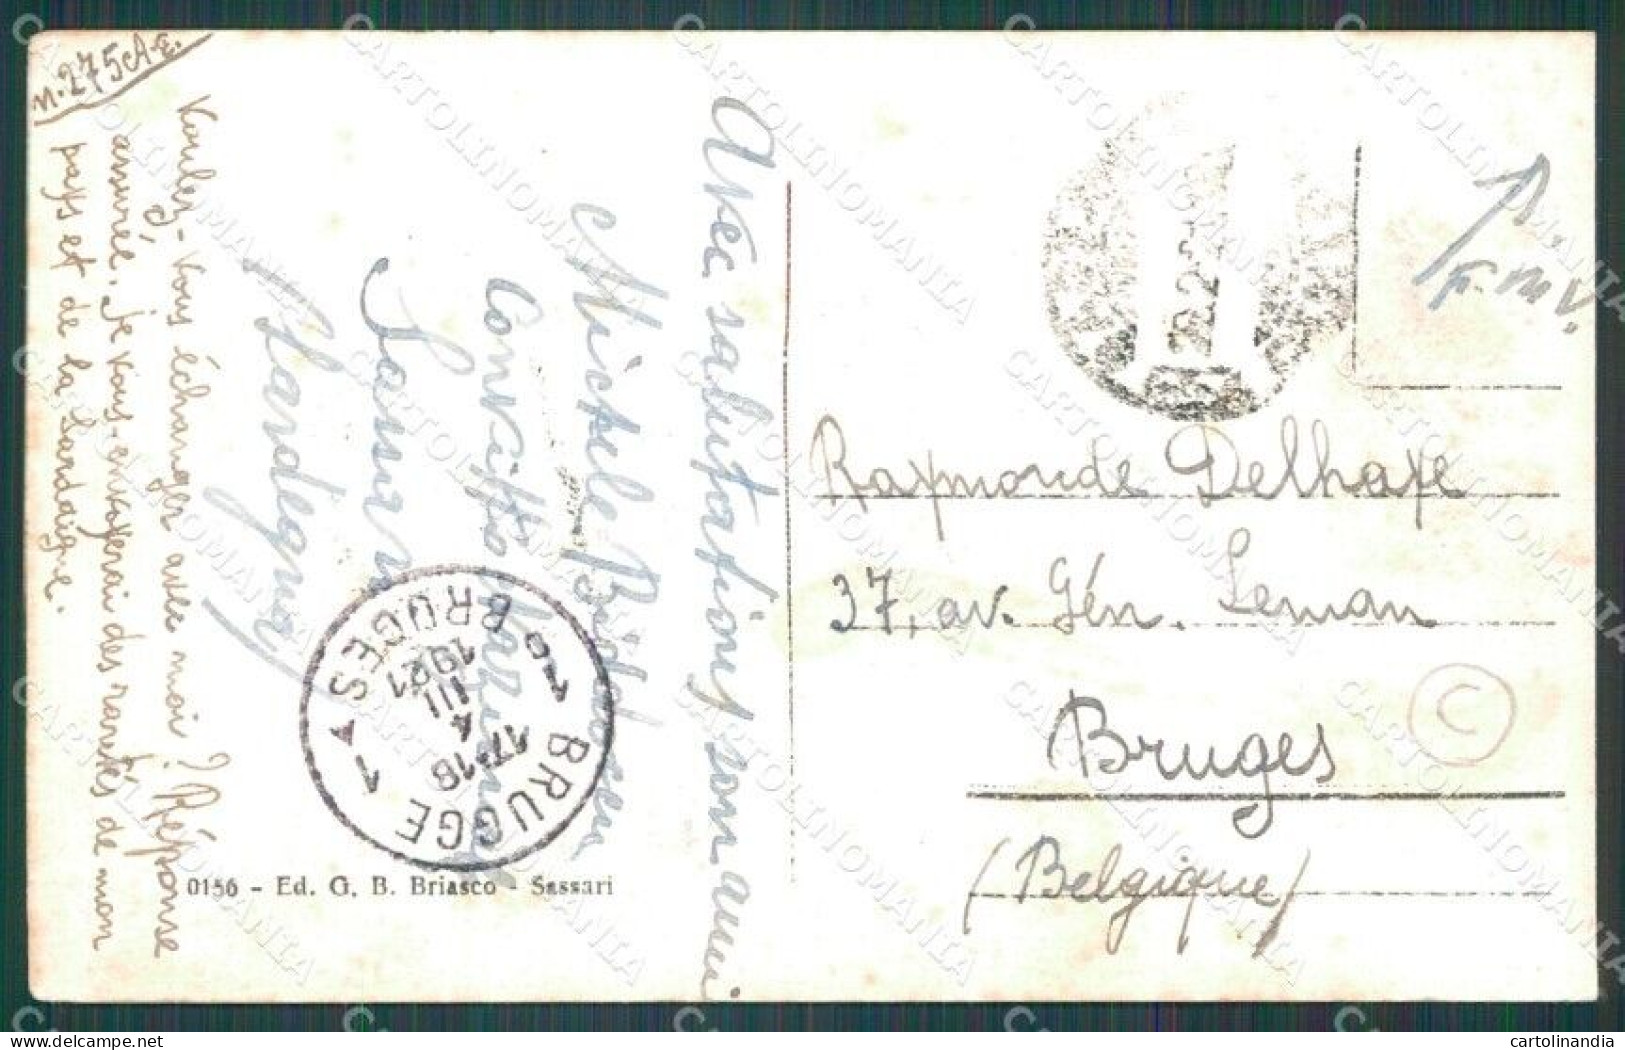 n. 275 A.E.
Voulez-vous échanger avec moi? Réponse
assurée. Je vous enverrai des raretés de mon
pays et de la Sardaigne.
Avec salutations son ami
Michele
Convitto Nazionale
Sassari
(Sardegna)
0156 - Ed. G. B. Briasco - Sassari
BRUGGE 1
17-18
4
III
1921
1B BRUGES
22.2
T.
F. M V.
Raymonde Delhaye
37, av. Gén. Leman
Bruges
(Belgique)
C
CARTOLINOMANIA
cartolinandia